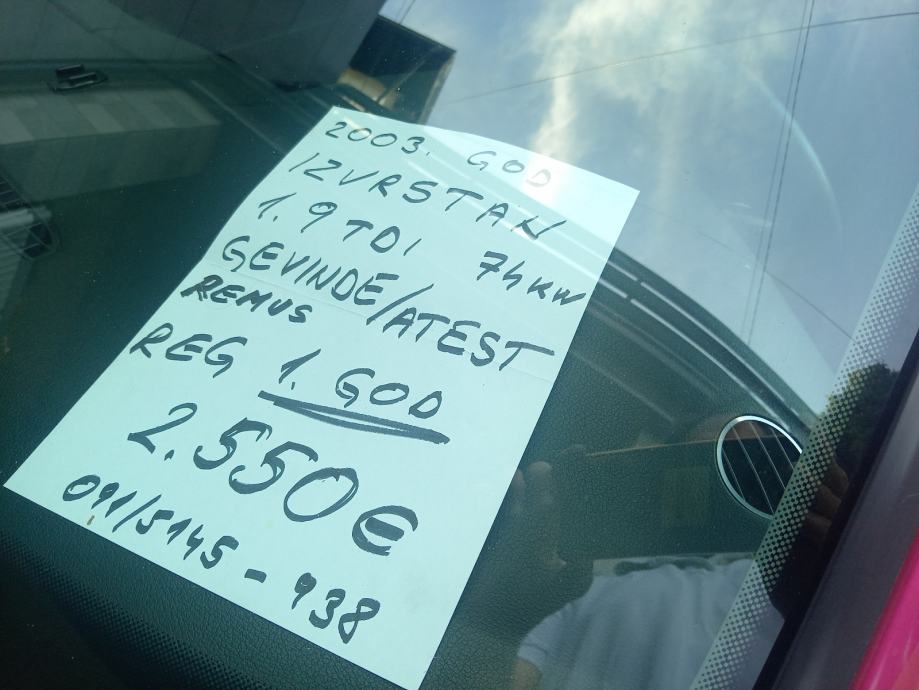 2003. GOD
IZVRSTAN
1.9 TDI 74KW
GEVINDE/ATEST
REMUS
REG 1. GOD
2.550€
091/5145-938